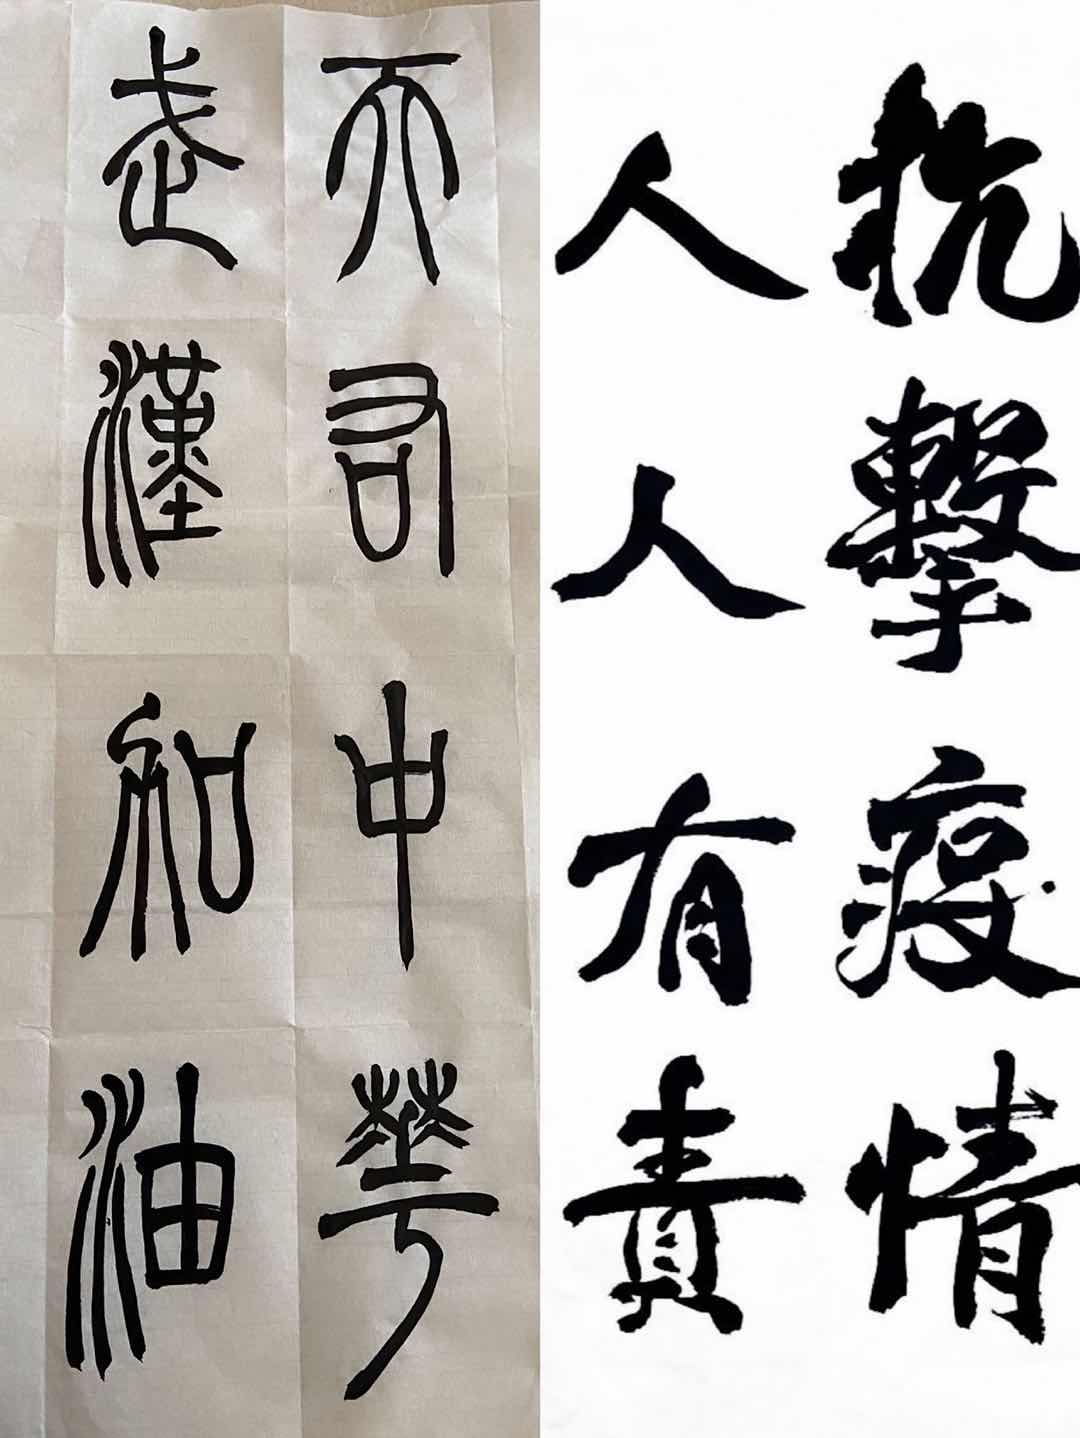 抗擊疫情
人人有責
天右中華
武漢加油